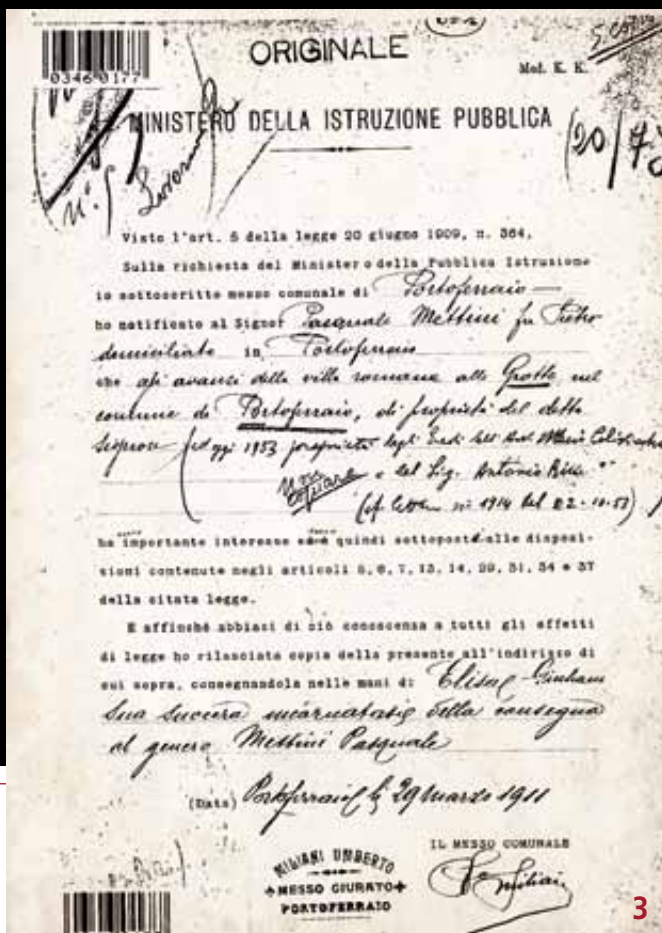 ORIGINALE
Mod. K. K.
03460177
MINISTERO DELLA ISTRUZIONE PUBBLICA
n. 5
Visto l'art. 5 della legge 20 giugno 1909, n. 364,
Sulla richiesta del Ministero della Pubblica Istruzione
io sottoscritto messo comunale di Portoferraio
ho notificato al Signor Pasquale Mettini fu Pietro
domiciliato in Portoferraio
che gli avanzi della villa romana alle Grotte, nel
comune di Portoferraio, di proprietà del detto
Signore (ed oggi 1953 proprietà degli Eredi
non copiare e del Sig. Antonio
n. 1914 del 22-10-53)
ha importante interesse ed è quindi sottoposto alle disposi-
zioni contenute negli articoli 5, 6, 7, 13, 14, 29, 31, 34 e 37
della citata legge.
E affinché abbiasi di ciò conoscenza a tutti gli effetti
di legge ho rilasciata copia della presente all'indirizzo di
cui sopra, consegnandola nelle mani di Elisa
sua suocera della consegna
al genero Mettini Pasquale
(Data) Portoferraio li 29 marzo 1911
IL MESSO COMUNALE
MILIANI UMBERTO
MESSO GIURATO
PORTOFERRAIO
Miliani
3